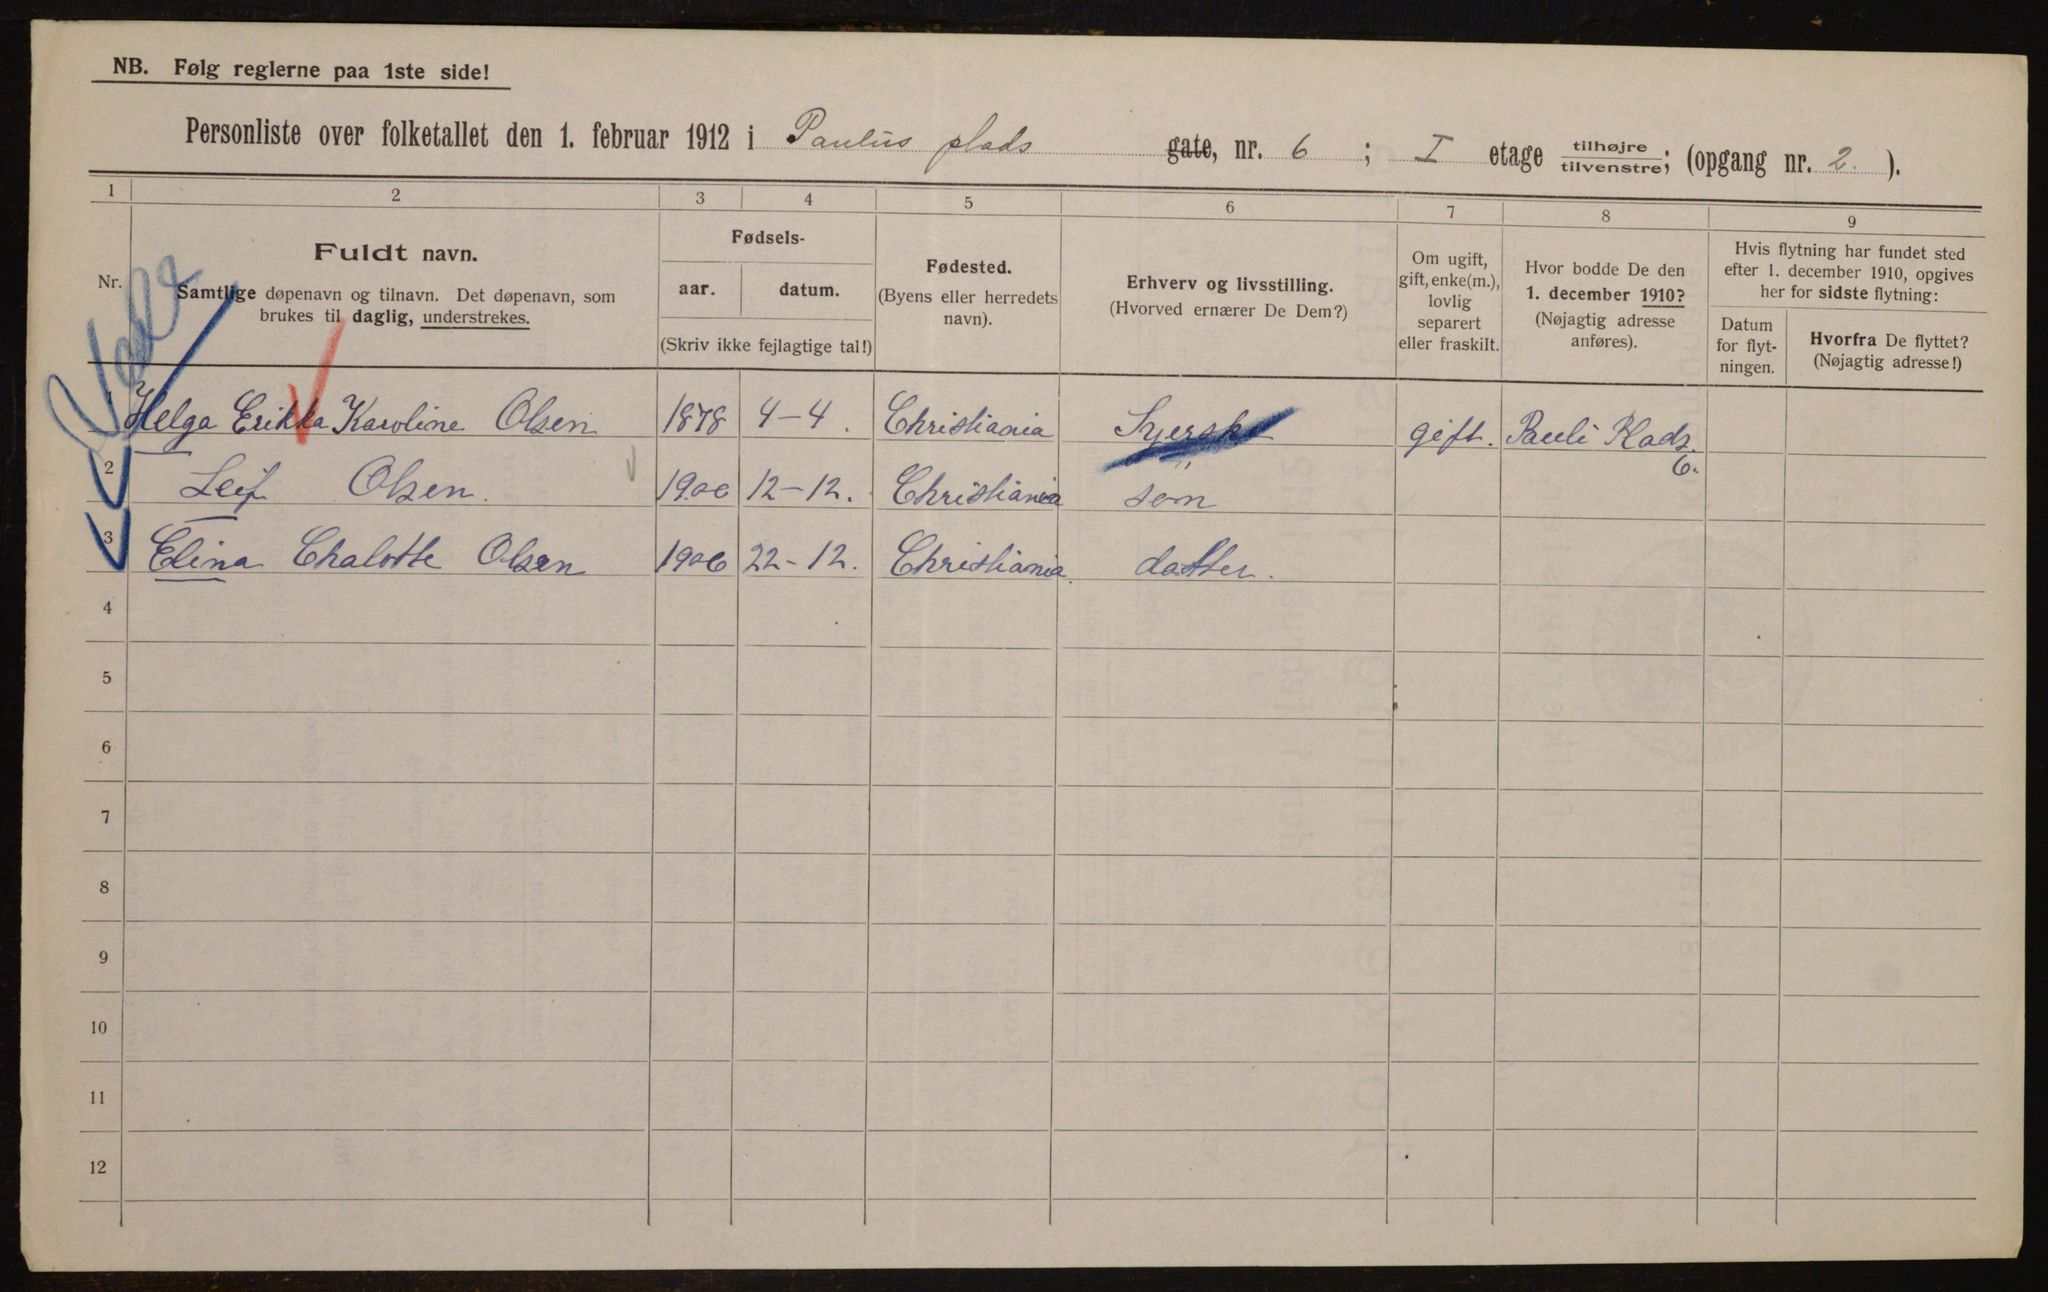 NB. Følg reglerne paa 1ste side!
Personliste over folketallet den 1. februar 1912 i Paulus plads gate, nr. 6 ; I etage tilhøjre/tilvenstre; (opgang nr. 2. ).
1 2 3 4 5 6 7 8 9
Nr.
Fuldt navn.
Samtlige døpenavn og tilnavn. Det døpenavn, som
brukes til daglig, understrekes.
Fødsels-
aar. datum.
(Skriv ikke fejlagtige tal!)
Fødested.
(Byens eller herredets
navn).
Erhverv og livsstilling.
(Hvorved ernærer De Dem?)
Om ugift,
gift, enke(m.),
lovlig
separert
eller fraskilt.
Hvor bodde De den
1. december 1910?
(Nøjagtig adresse
anføres).
Hvis flytning har fundet sted
efter 1. december 1910, opgives
her for sidste flytning:
Datum
for flyt-
ningen.
Hvorfra De flyttet?
(Nøjagtig adresse!)
1 Helga Erikka Karoline Olsen 1878 4-4. Christiania Syerske gift. Pauli Plads 6.
2 Leif Olsen. 1900 12-12. Christiania " søn
3 Elina Chalotte Olsen 1906 22-12. Christiania. datter.
4
5
6
7
8
9
10
11
12